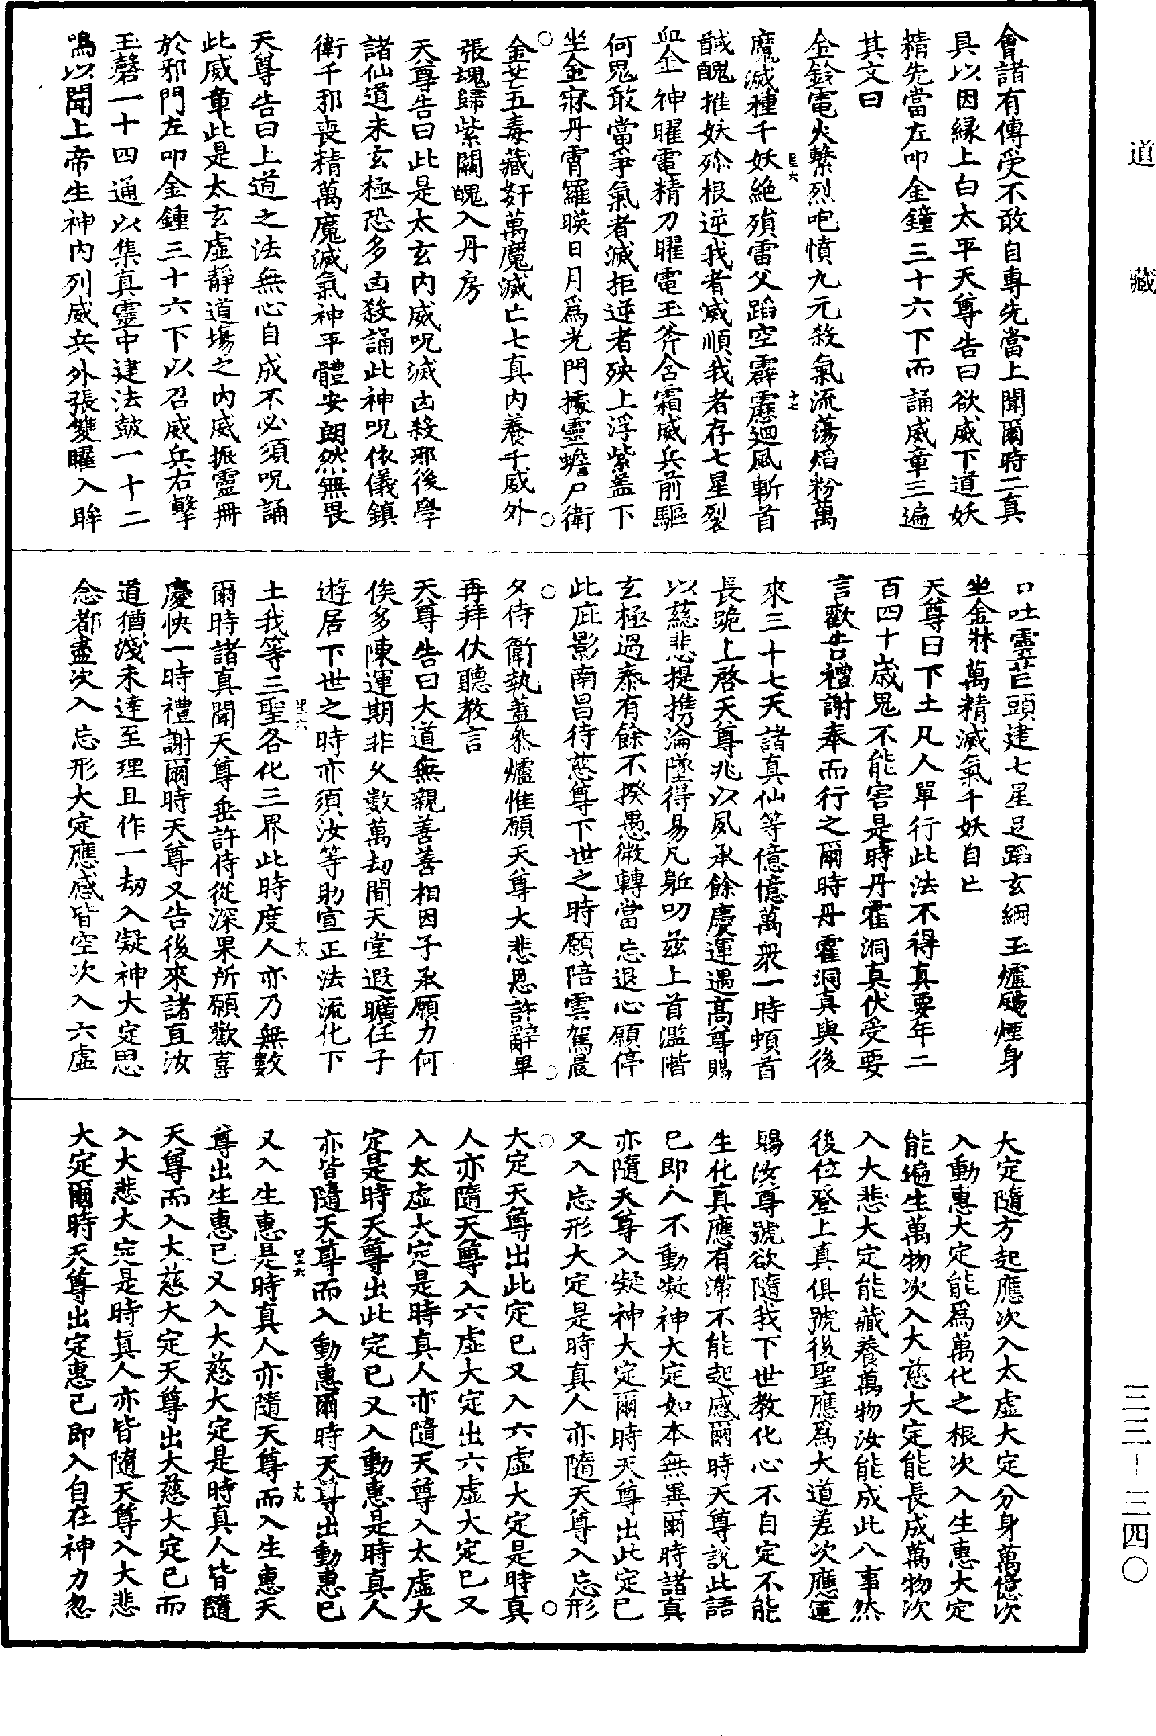 道藏
會諸有傳受不敢自專先當上聞爾時二真
具以因緣上白太平天尊告曰欲威下道妖
精先當左叩金鐘三十六下而誦威章三遍
其文曰
金鈴電火繫烈咆憤九元殺氣流蕩焰粉萬
魔滅種千妖絕殞雷父蹈空霹靂迴風斬首
馘醜推妖殄根逆我者滅順我者存七星裂
血金神曜電精刀曜電玉斧含霜威兵前驅
何鬼敢當爭氣者滅拒逆者殃上浮紫蓋下
坐金床丹霄羅暎日月爲光門據靈蟾戶衛
金芒五毒藏奸萬魔滅亡七真內養千威外
張魂歸紫闕魄入丹房
天尊告曰此是太玄內威呪滅凶殺邪後學
諸仙道未玄極恐多凶殺誦此神呪依儀鎮
衛千邪喪精萬魔滅氣神平體安朗然無畏
天尊告曰上道之法無心自成不必須呪誦
此威章此是太玄虛靜道場之內威振靈冊
於邪門左叩金鍾三十六下以召威兵右擊
玉磬一十四通以集真靈中建法鼓一十二
鳴以聞上帝生神內列威兵外張雙曜入眸
口吐靈芒頭建七星足蹈玄綱玉爐颺煙身
坐金牀萬精滅氣千妖自亡
天尊曰下土凡人單行此法不得真要年二
百四十歲鬼不能害是時丹霍洞真伏受要
言歡告禮謝奉而行之爾時丹霍洞真與後
來三十七天諸真仙等億億萬衆一時頓首
長跪上啓天尊兆以夙承餘慶運遇高尊賜
以慈悲提携淪墜得易凡軀叨兹上首濫階
玄極過泰有餘不揆愚微轉當忘退心願停
此庇影南昌待慈尊下世之時願陪雲駕晨
夕侍衛執蓋叅爐惟願天尊大悲恩許辭畢
再拜伏聽教言
天尊告曰大道無親善善相因子承願力何
俟多陳運期非久數萬劫間天堂遐曠任子
遊居下世之時亦須汝等助宣正法流化下
土我等三聖各化三界此時度人亦乃無數
爾時諸真聞天尊垂許侍從深果所願歡喜
慶快一時禮謝爾時天尊又告後來諸真汝
道猶淺未達至理且作一劫入凝神大定思
念都盡次入忘形大定應感皆空次入六虛
大定隨方起應次入太虛大定分身萬億次
入動惠大定能爲萬化之根次入生惠大定
能遍生萬物次入大慈大定能長成萬物次
入大悲大定能藏養萬物汝能成此八事然
後位登上真俱號後聖應爲大道差次應運
賜汝尊號欲隨我下世教化心不自定不能
生化真應有滯不能起感爾時天尊說此語
已即入不動凝神大定如本無異爾時諸真
亦隨天尊入凝神大定爾時天尊出此定已
又入忘形大定是時真人亦隨天尊入忘形
大定天尊出此定已又入六虛大定是時真
人亦隨天尊入六虛大定出六虛大定已又
入太虛大定是時真人亦隨天尊入太虛大
定是時天尊出此定已又入動惠是時真人
亦皆隨天尊而入動惠爾時天尊出動惠已
又入生惠是時真人亦隨天尊而入生惠天
尊出生惠已又入大慈大定是時真人皆隨
天尊而入大慈大定天尊出大慈大定已而
入大悲大定是時真人亦皆隨天尊入大悲
大定爾時天尊出定惠已即入自在神力忽
三三—三四〇